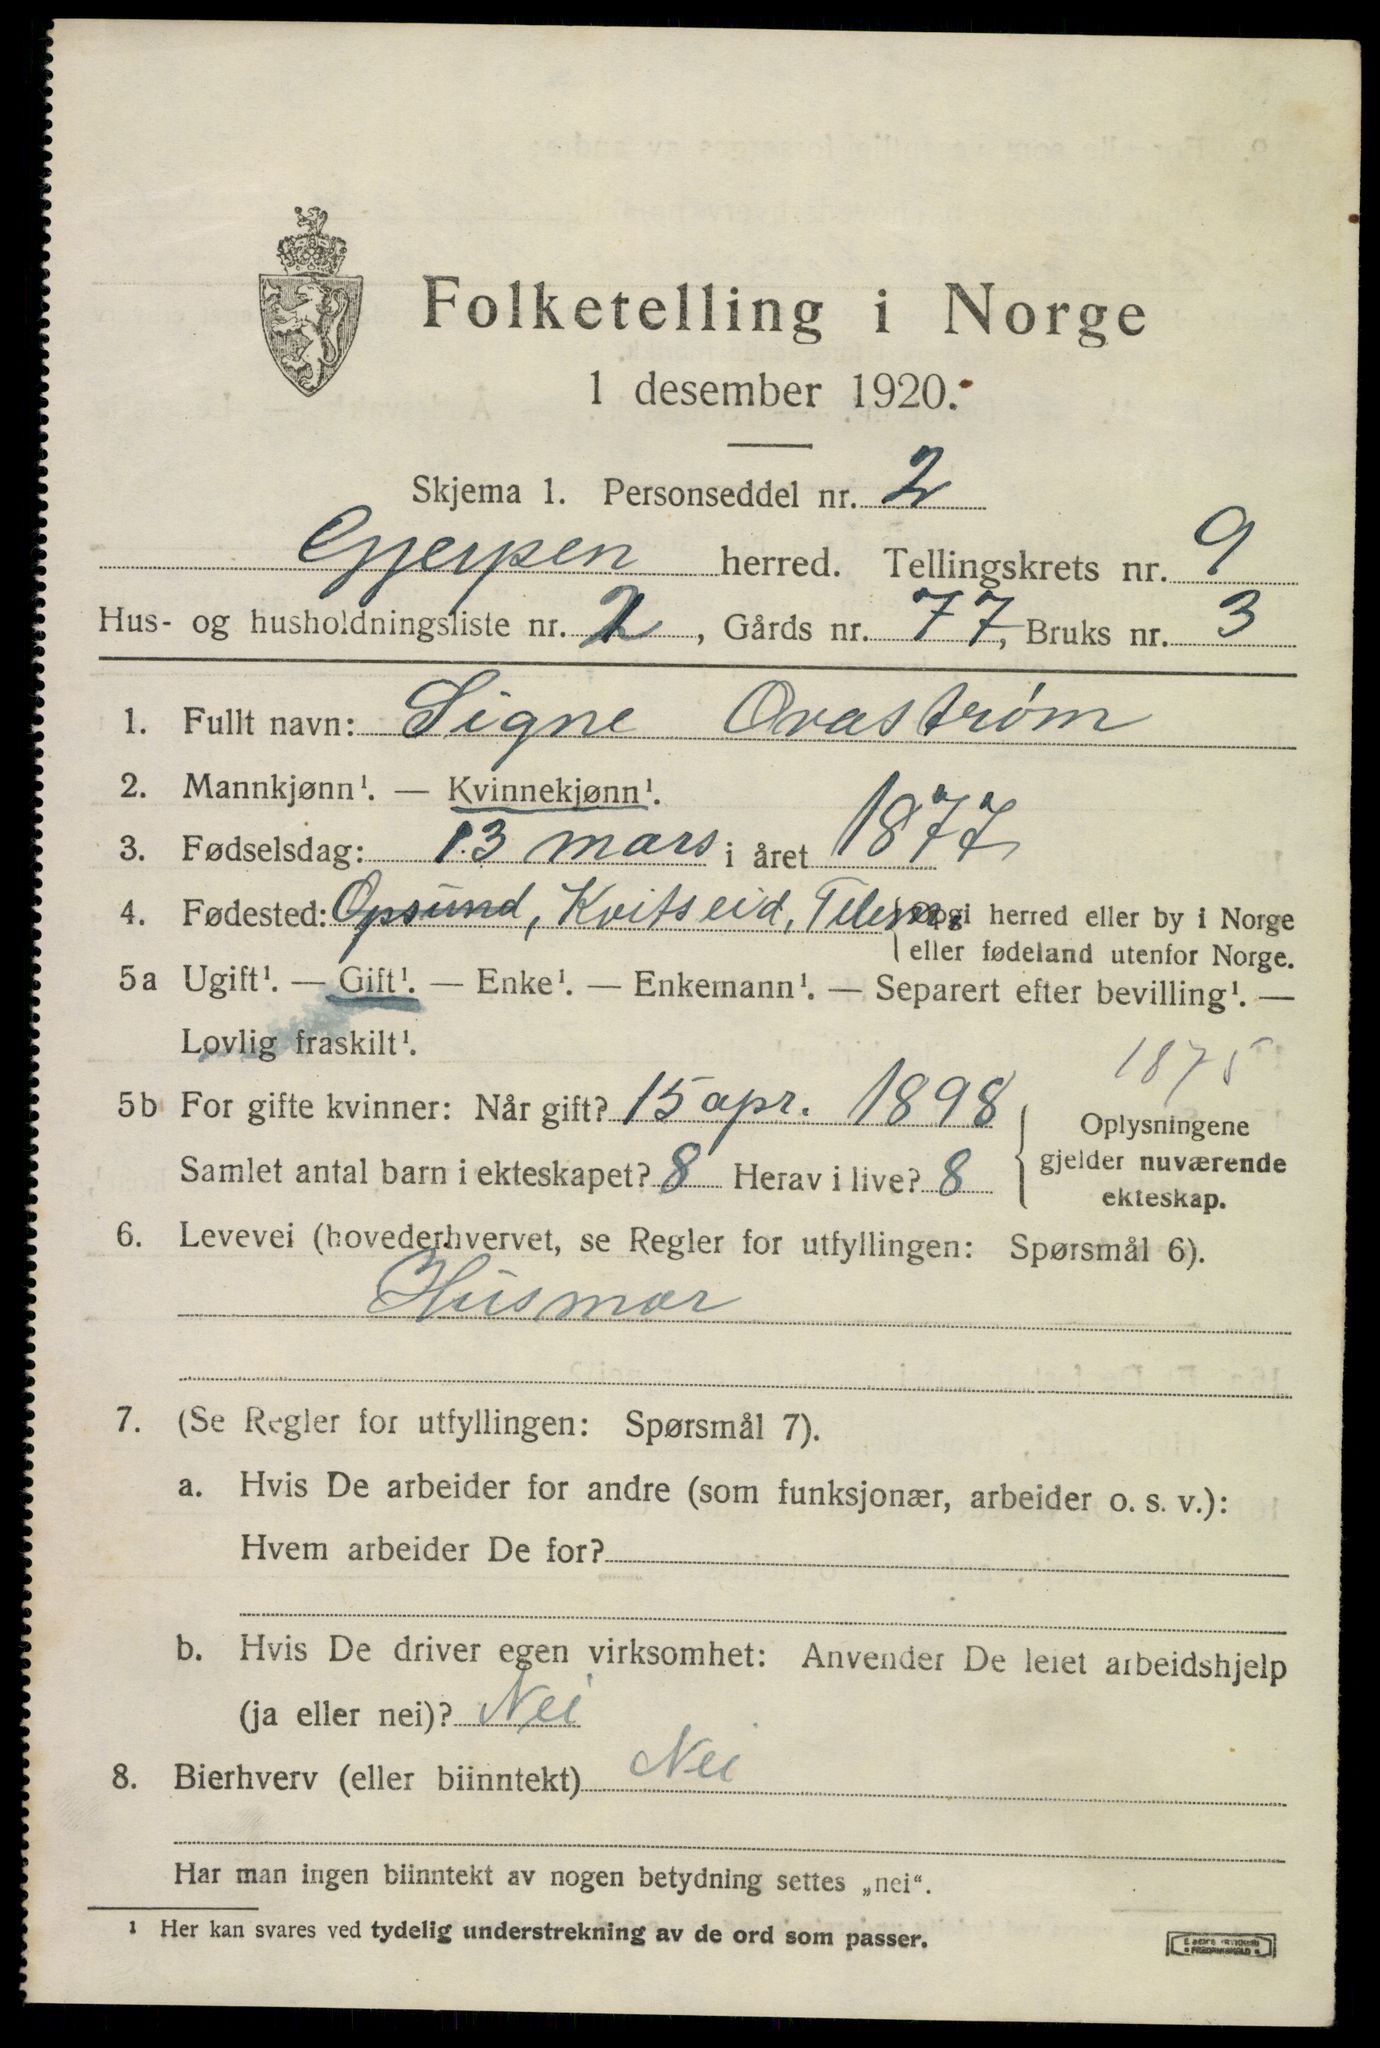 Folketelling i Norge
1 desember 1920.
Skjema 1. Personseddel nr. 2
Gjerpen herred. Tellingskrets nr. 9
Hus- og husholdningsliste nr. 2, Gårds nr. 77, Bruks nr. 3
1. Fullt navn: Signe Ovastrøm
2. Mannkjønn¹. — Kvinnekjønn¹.
3. Fødselsdag: 13 mars i året 1877
4. Fødested: Opsund, Kvitseid, Telem. Opgi herred eller by i Norge
eller fødeland utenfor Norge.
5a Ugift¹. — Gift¹. — Enke¹. — Enkemann¹. — Separert efter bevilling¹. —
Lovlig fraskilt¹.
1875
5b For gifte kvinner: Når gift? 15 apr. 1898
Samlet antal barn i ekteskapet? 8 Herav i live? 8
Oplysningene
gjelder nuværende
ekteskap.
6. Levevei (hovederhvervet, se Regler for utfyllingen: Spørsmål 6).
Husmor
7. (Se Regler for utfyllingen: Spørsmål 7).
a. Hvis De arbeider for andre (som funksjonær, arbeider o. s. v.):
Hvem arbeider De for?
b. Hvis De driver egen virksomhet: Anvender De leiet arbeidshjelp
(ja eller nei)? Nei
8. Bierhverv (eller biinntekt) Nei
Har man ingen biinntekt av nogen betydning settes „nei“.
¹ Her kan svares ved tydelig understrekning av de ord som passer.